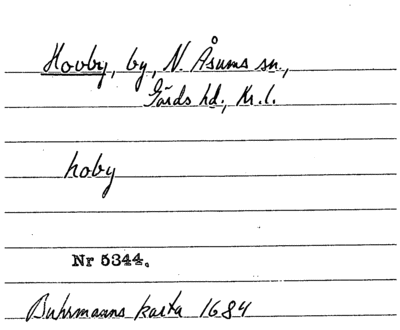 Hovby, by, N. Åsums sn.,
Gärds hd., Kr. l.
hoby
Nr 5344.
Buhrmanns karta 1684